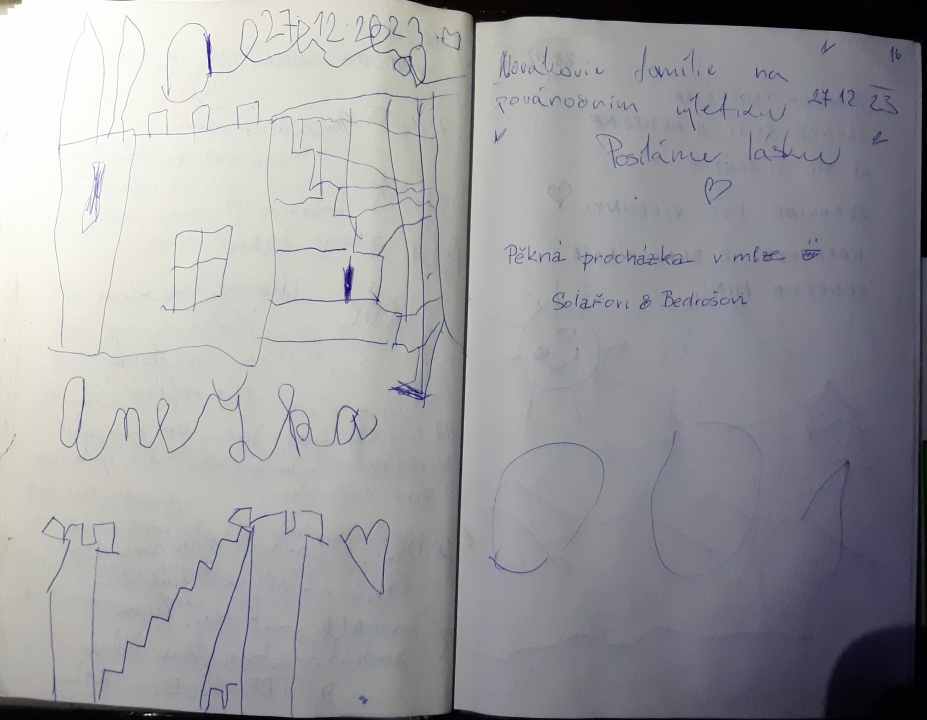 27.12.2023
Anežka
16
Novákovic famílie na
povánočním výletíku 27.12.23
Posíláme lásku
Pěkná procházka v mlze
Solařovi & Bedrošovi